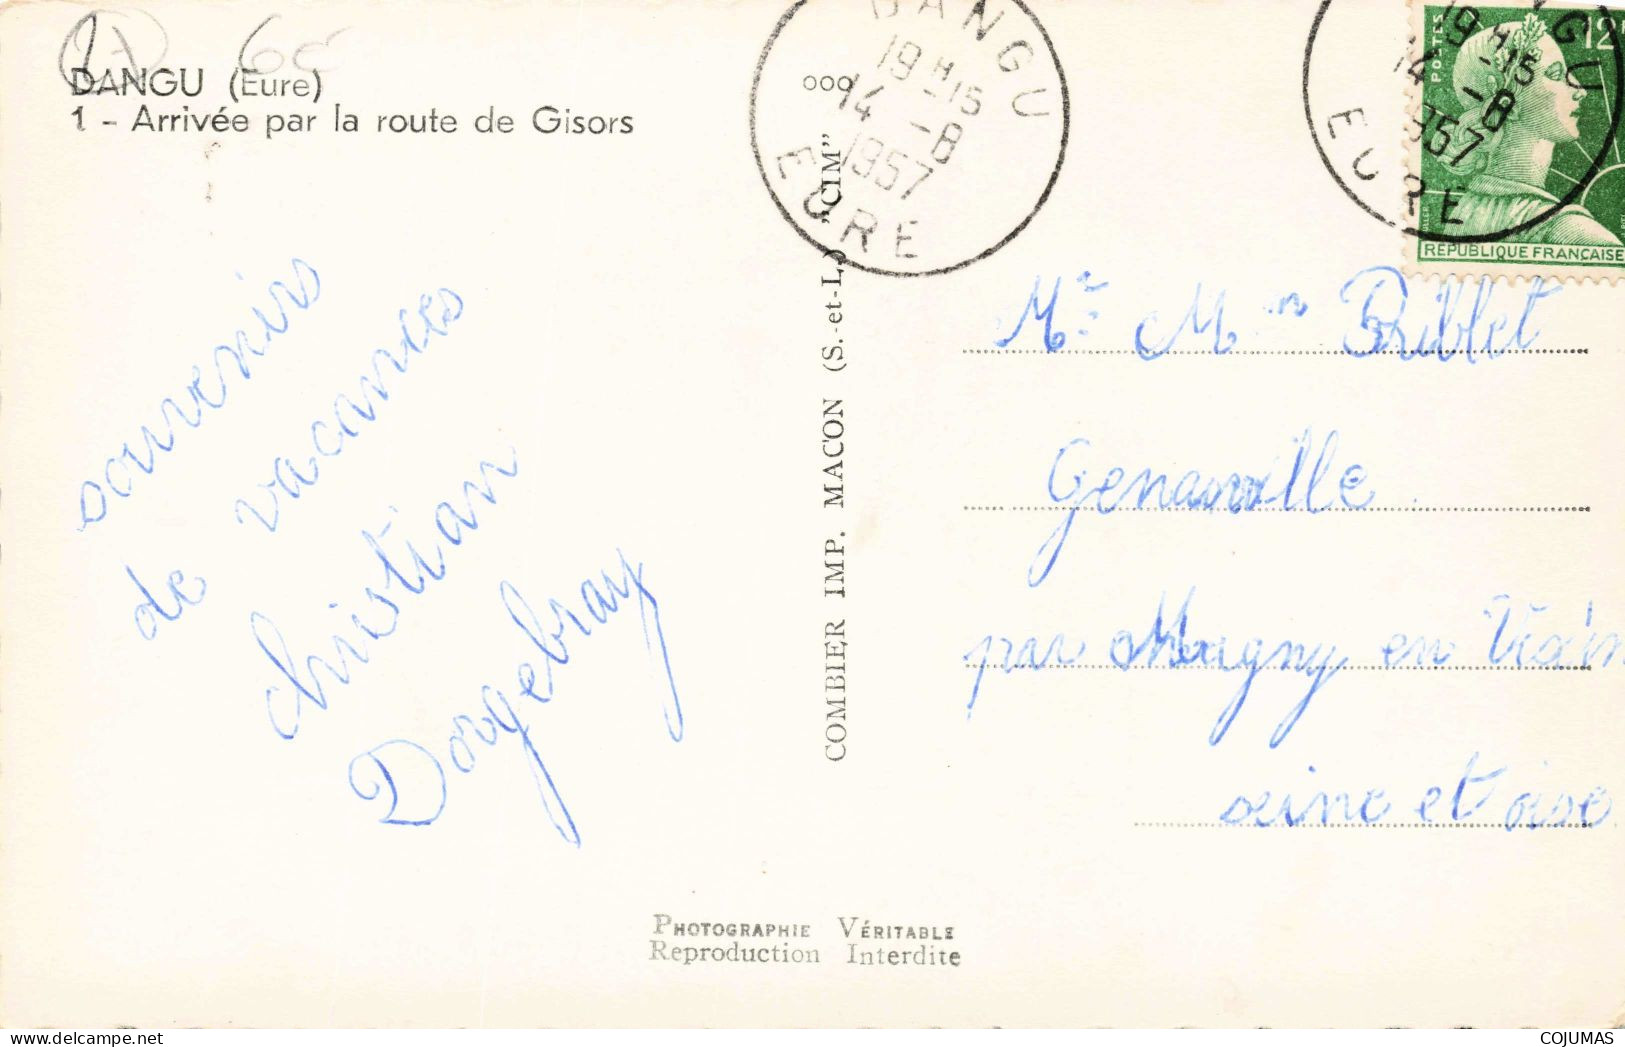 DANGU (Eure)
1 - Arrivée par la route de Gisors
souvenirs
de vacances
christian
Dorgebray
COMBIER IMP. MACON (S.-et-L.) "CIM"
DANGU
19 H -15
14 -8
1957
EURE
19 H -15
14 -8
1957
EURE
POSTES
12F
RÉPUBLIQUE FRANÇAISE
Mr Mm Briblet
Genainville
par Magny en Véxin
seine et oise
PHOTOGRAPHIE VÉRITABLE
Reproduction Interdite
COJUMAS